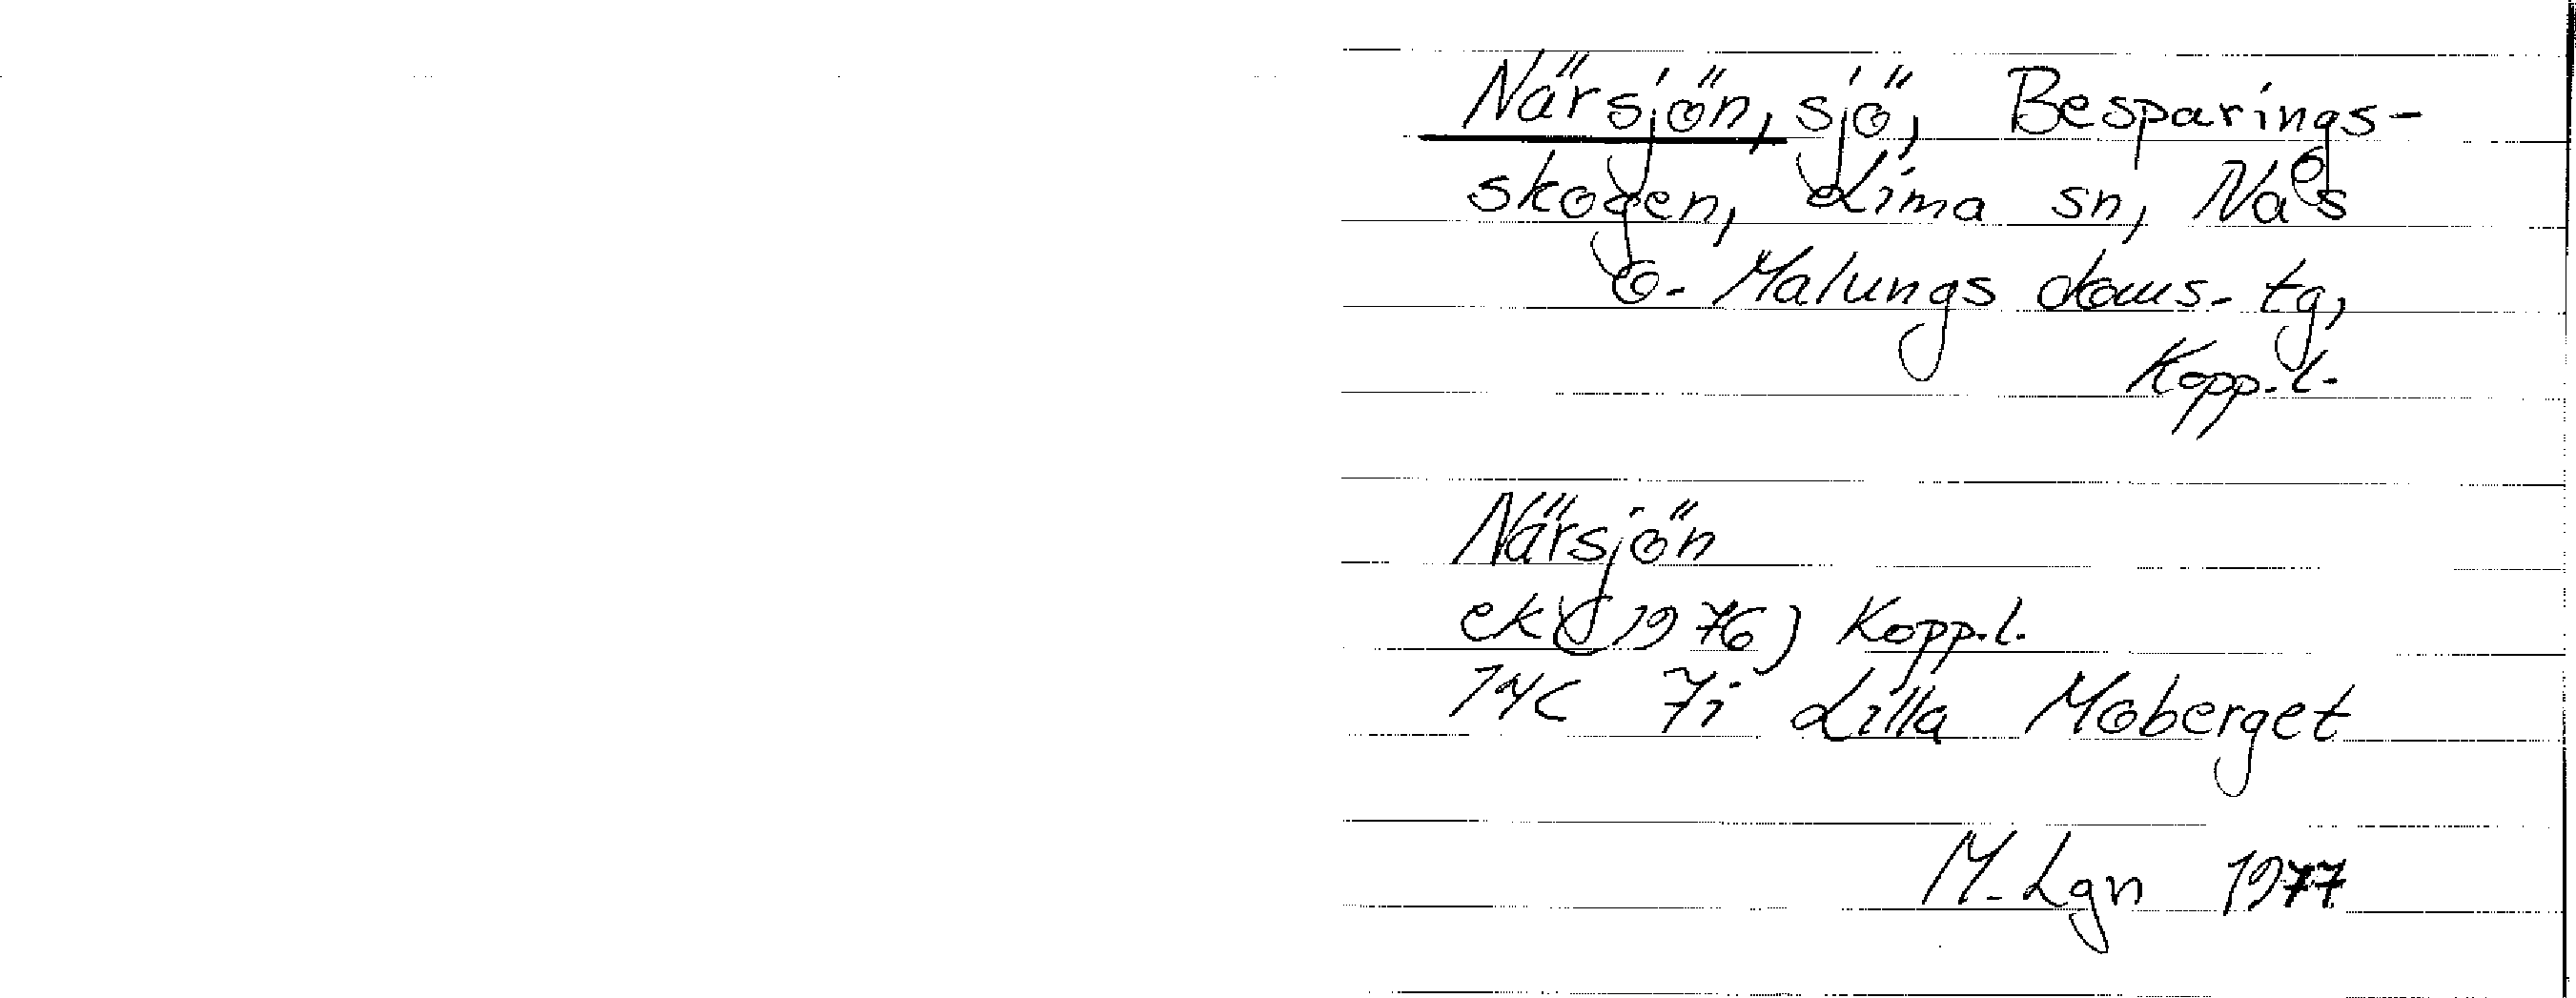 Närsjön, sjö, Besparings-
skogen, Lima sn, Nås
o. Malungs doms. tg,
Kopp.l.
Närsjön
ek (1976) Kopp.l.
14C 7i Lilla Moberget
M. Lgn 1977